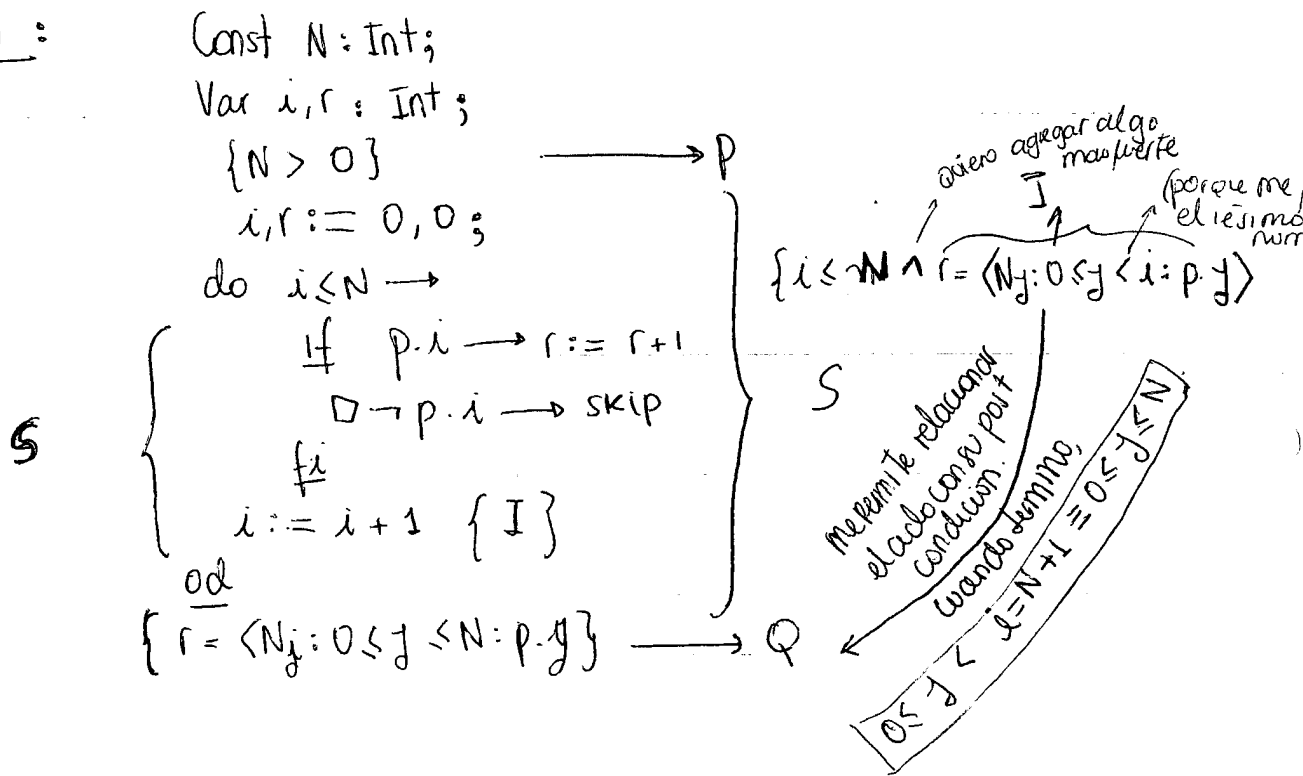 Const N : Int;
Var i, r : Int;
{N > 0} → P
i, r := 0, 0;
do i ≤ N →
If p.i → r := r + 1
□ ¬ p.i → skip
fi
i := i + 1 {I}
od
{ r = <Nj : 0 ≤ j ≤ N : p.j} → Q
S
S
quiero agregar algo
mas fuerte
I
(porque me
el iésimo
{i ≤ N ∧ r = ⟨Nj : 0 ≤ j < i : p.j⟩
me permite relacionar
el ciclo con su post
condición.
cuando termino,
0 ≤ j < i = N + 1 ≡ 0 ≤ j ≤ N